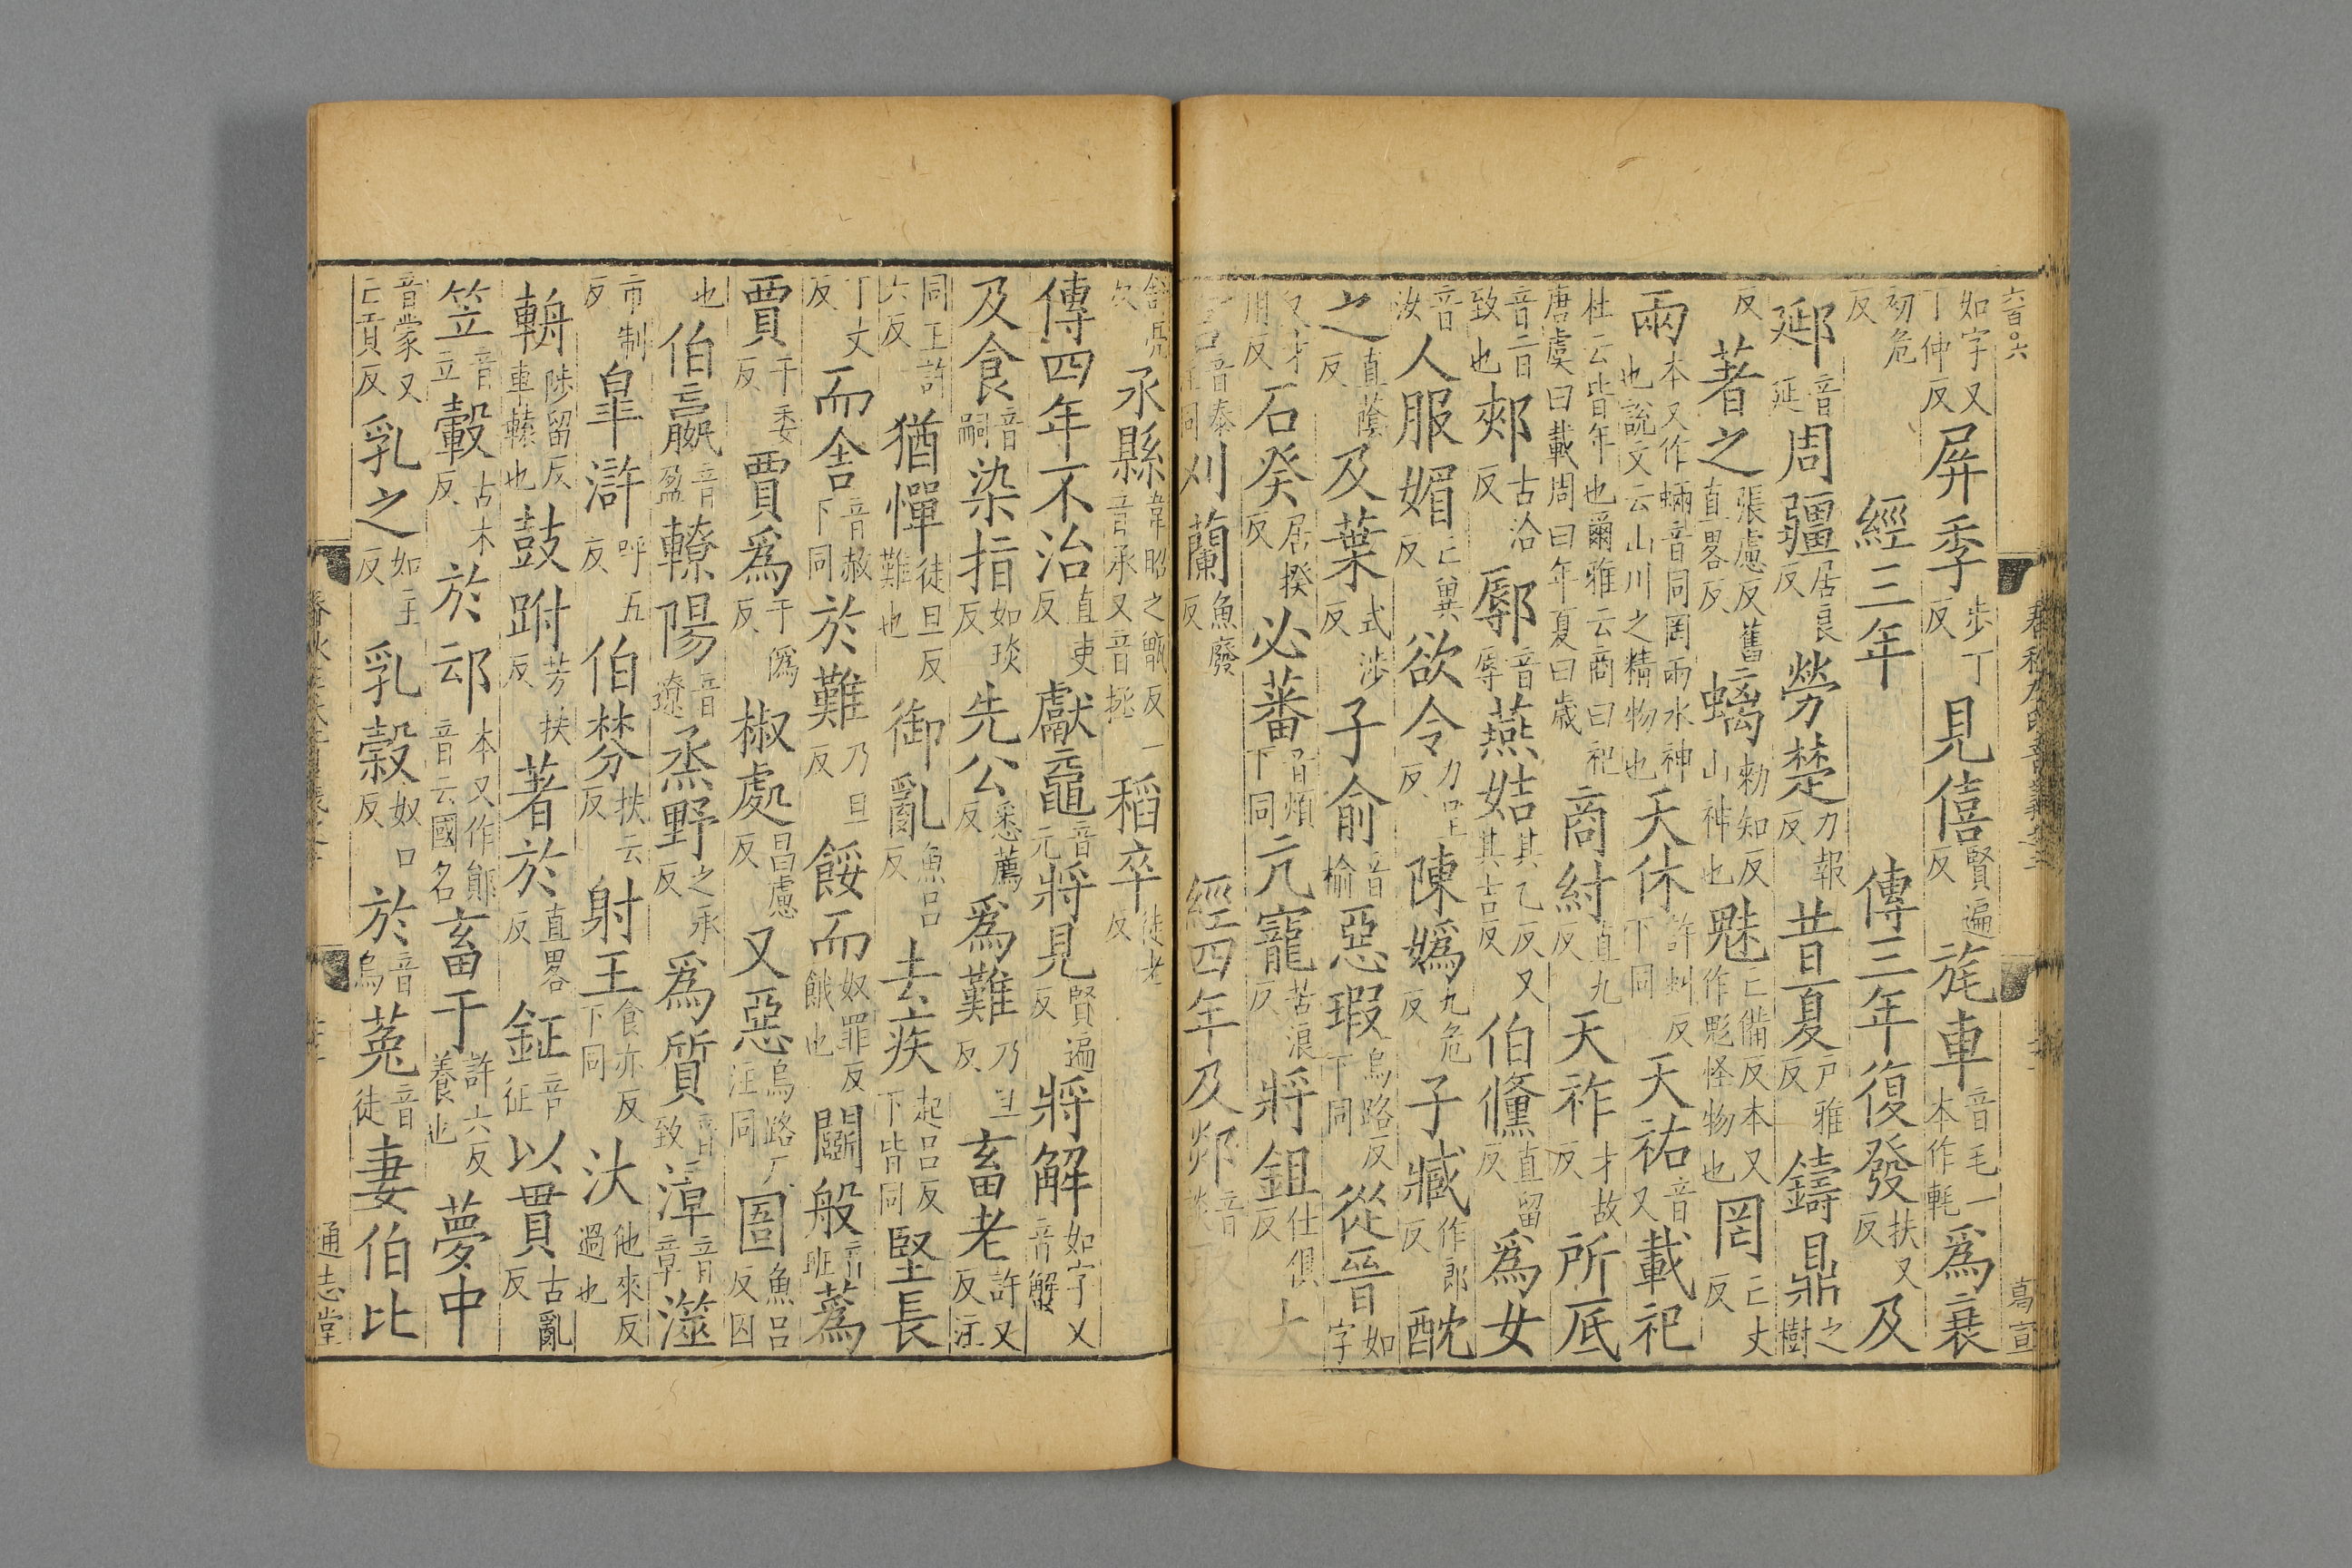 六百○六
葛亘
如字又丁仲反屏季步丁反見僖賢遍反旄車音毛一本作軞爲衰
初危反經三年傳三年復發扶又反及
郔音延周疆居良反勞楚力報反昔夏戶雅反鑄鼎之樹
反著之張慮反舊直畧反螭勅知反山神也魅亡備反本又作鬽怪物也罔亡丈反
兩本又作蜽音同罔兩水神也說文云山川之精物也天休許虯反下同天祐音又載祀
杜云皆年也爾雅云商曰祀唐虞曰載周曰年夏曰歲商紂直九反天祚才故反所厎
音旨致也郟古洽反鄏音辱燕姞其乙反又其吉反伯鯈直留反爲女
音汝人服媚亡兾反欲令力呈反陳嬀九危反子臧作郎反酖
之直蔭反及葉式涉反子俞音榆惡瑕烏路反下同從晉如字
又才用反石癸居揆反必蕃音煩下同亢寵苦浪反將鉏仕俱反大
音泰同刈蘭魚廢反經四年及郯音
承縣韋昭之甑反一音承又音拯稻卒徒老反
傳四年不治直吏反獻黿音元將見賢遍反將解如字又音蟹
及食音嗣染指如琰反先公悉薦反爲難乃旦反畜老許又反注
同王許六反猶憚徒旦反難也御亂魚呂反去疾起呂反下皆同堅長
丁丈反而舍音赦下同於難乃旦反餒而奴罪反餓也鬬般音班蒍
賈于委反賈爲于僞反椒處昌慮反又惡烏路反注同圄魚呂反囚
也伯嬴音盈轑陽音遼烝野之承反爲質音致漳音章澨
市制反皐滸呼五反伯棼扶云反射王食亦反下同汏他來反過也
輈陟留反車轅也鼓跗芳扶反著於直畧反鉦音征以貫古亂反
笠音立轂古木反於䢵本又作鄖音云國名畜于許六反養也夢中
音蒙又亡貢反乳之如主反乳穀奴口反於音烏菟音徒妻伯比
通志堂